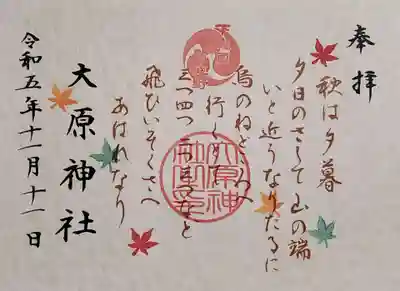 奉拝
秋は夕暮
夕日のさして山の端
いと近うなりたるに
烏のねどころへ
行くとて
三つ四つ二つみつなど
飛びいそぐさへ
あはれなり
大原神社
令和五年十一月十一日